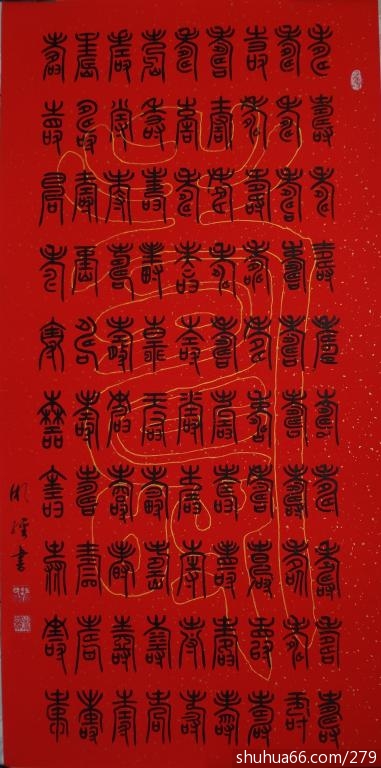 壽壽壽壽壽壽壽壽壽壽
壽壽壽壽壽壽壽壽壽壽
壽壽壽壽壽壽壽壽壽壽
壽壽壽壽壽壽壽壽壽壽
壽壽壽壽壽壽壽壽壽壽
壽壽壽壽壽壽壽壽壽壽
壽壽壽壽壽壽壽壽壽壽
壽壽壽壽壽壽壽壽壽壽
壽壽壽壽壽壽壽壽壽壽
壽
書
shuhua66.com/279